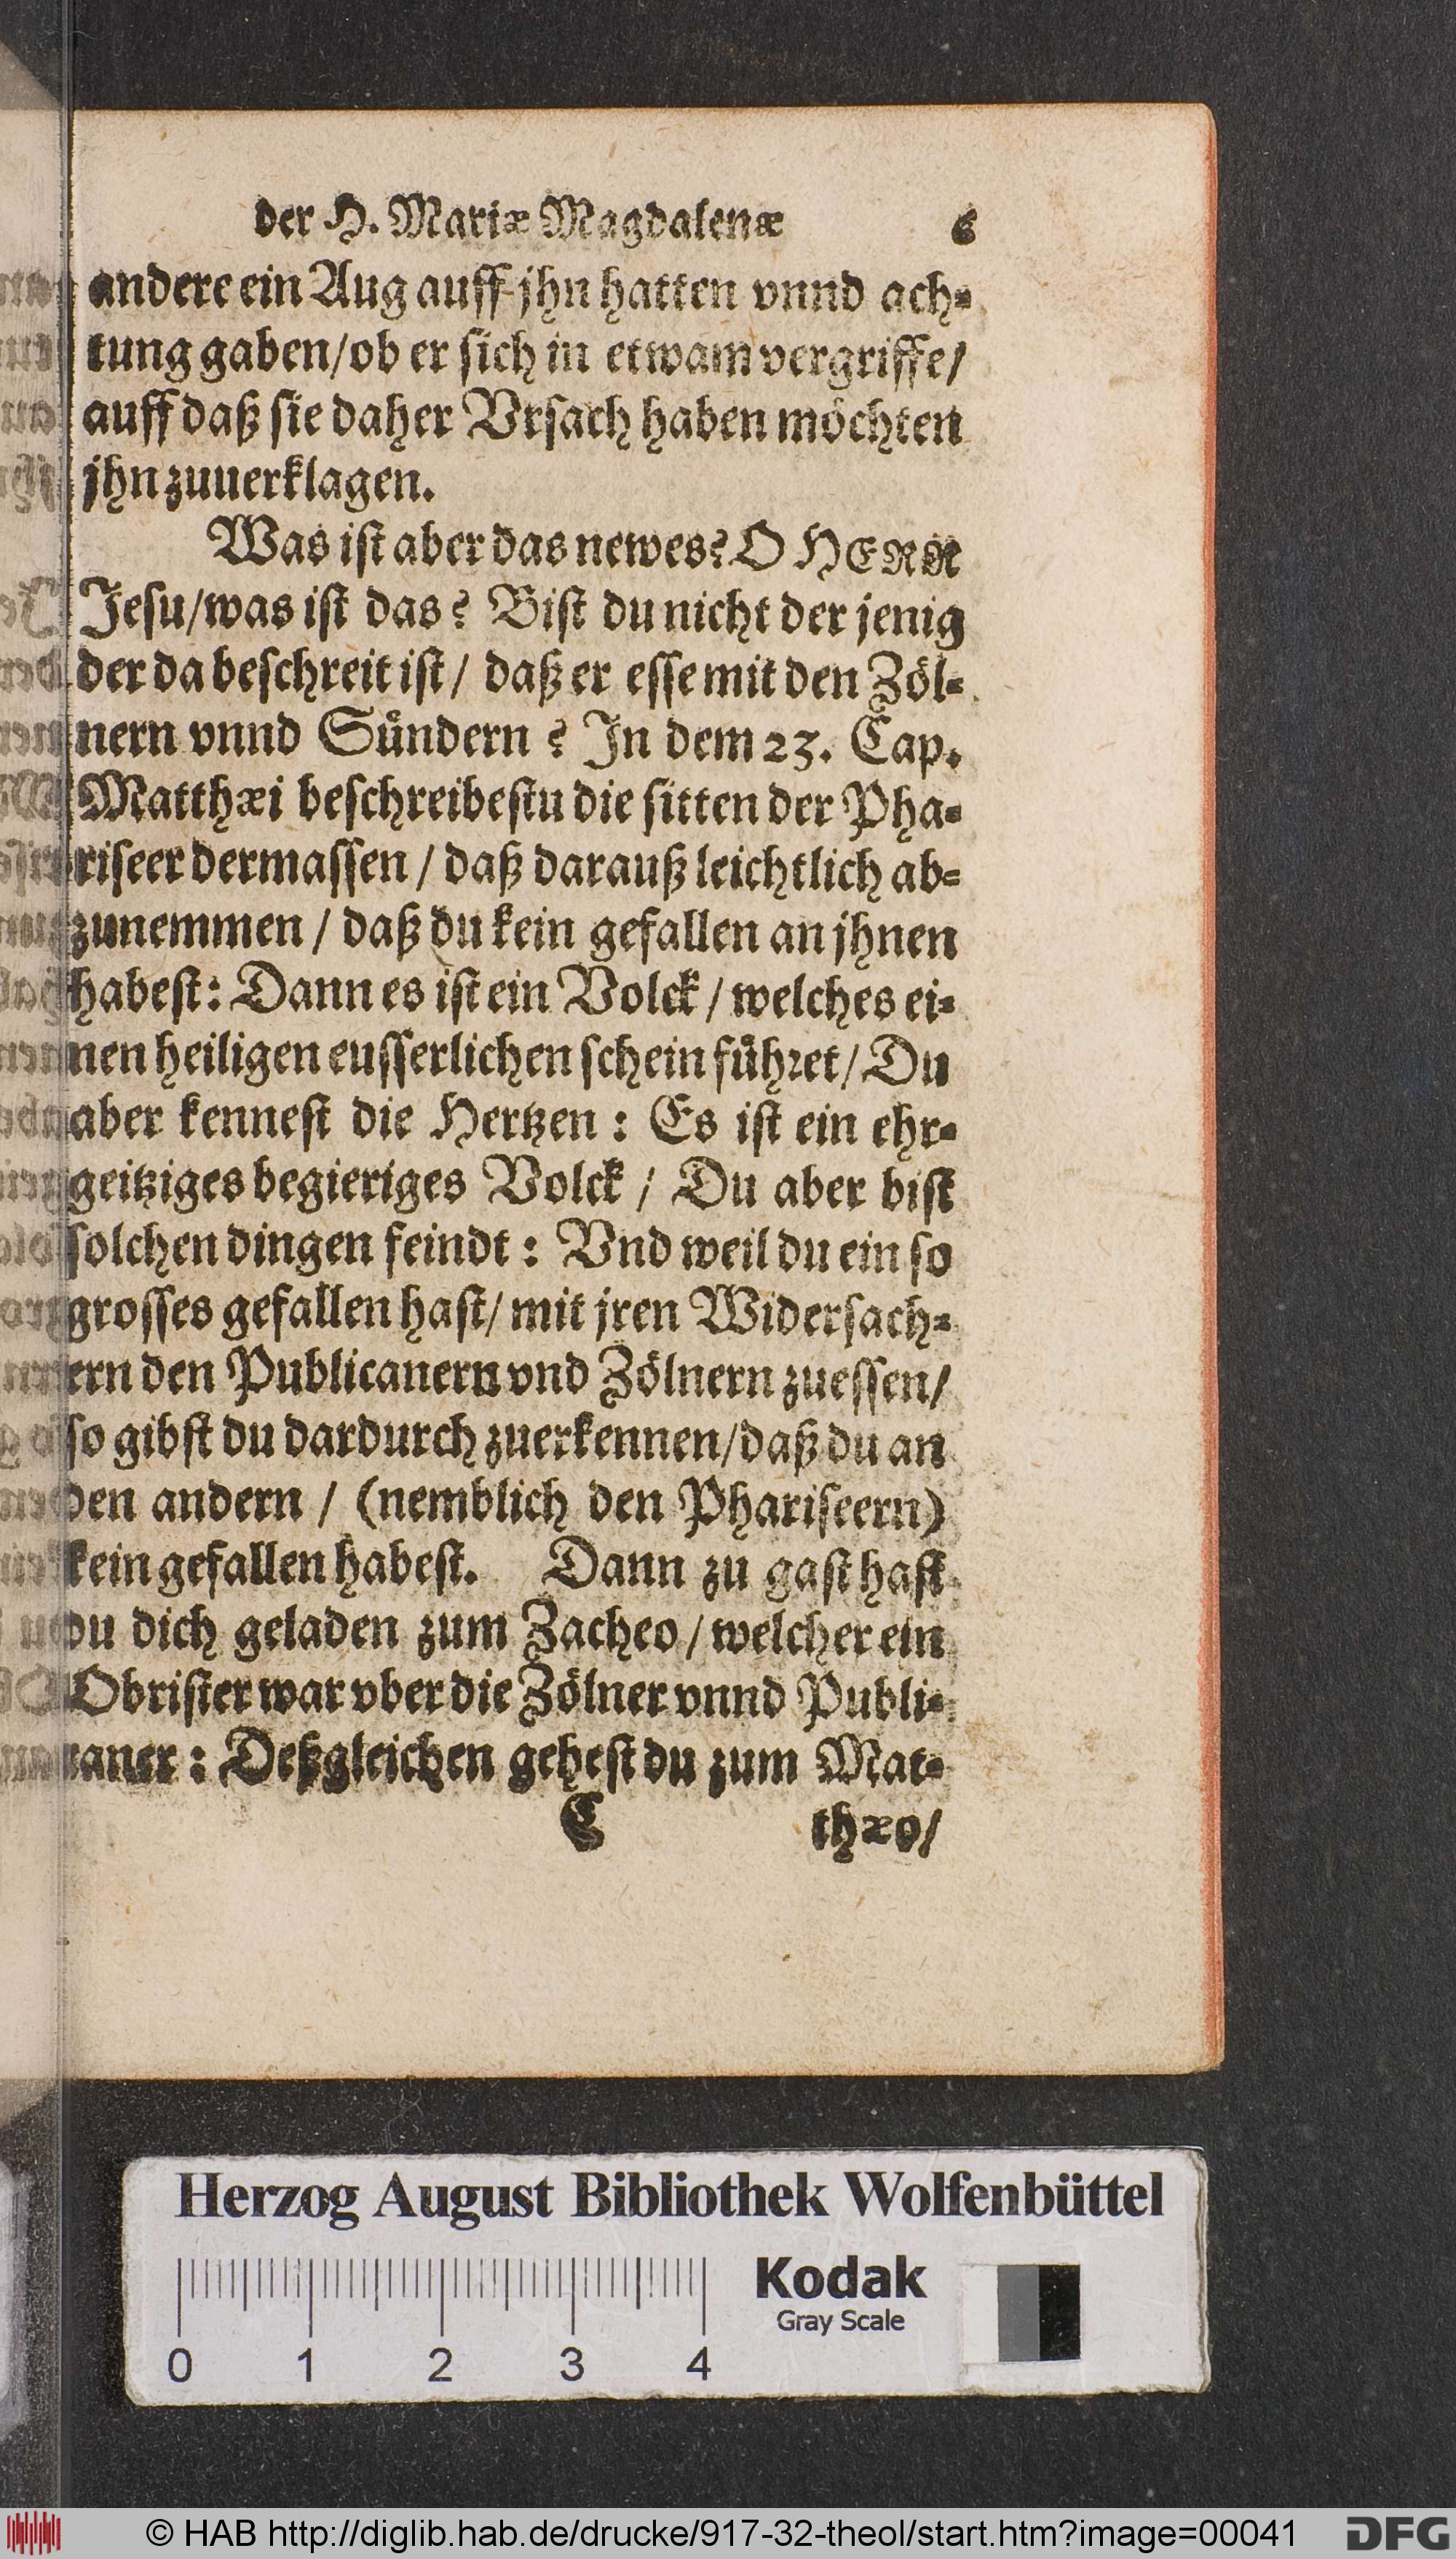 der H. Mariæ Magdalenæ 6
andere ein Aug auff jhn hatten vnnd ach-
tung gaben/ob er sich in etwam vergriffe/
auff daß sie daher Vrsach haben möchten
jhn zuuerklagen.
Was ist aber das newes? O HERR
Jesu/was ist das? Bist du nicht der jenig
der da beschreit ist/ daß er esse mit den Zöl-
nern vnnd Sündern? In dem 23. Cap.
Matthæi beschreibestu die sitten der Pha-
riseer dermassen/ daß darauß leichtlich ab-
zunemmen/ daß du kein gefallen an jhnen
habest: Dann es ist ein Volck/ welches ei-
nen heiligen eusserlichen schein führet/ Du
aber kennest die Hertzen: Es ist ein ehr-
geitziges begieriges Volck/ Du aber bist
solchen dingen feindt: Vnd weil du ein so
grosses gefallen hast/ mit jren Widersach-
ern den Publicanern vnd Zölnern zuessen/
so gibst du dardurch zuerkennen/daß du an
den andern/ (nemblich den Phariseern)
kein gefallen habest. Dann zu gast hast
du dich geladen zum Zacheo/ welcher ein
Obrister war vber die Zölner vnnd Publi-
caner: Deßgleichen gehest du zum Mat-
C thæo/
Herzog August Bibliothek Wolfenbüttel
Kodak
Gray Scale
0 1 2 3 4
© HAB http://diglib.hab.de/drucke/917-32-theol/start.htm?image=00041 DFG